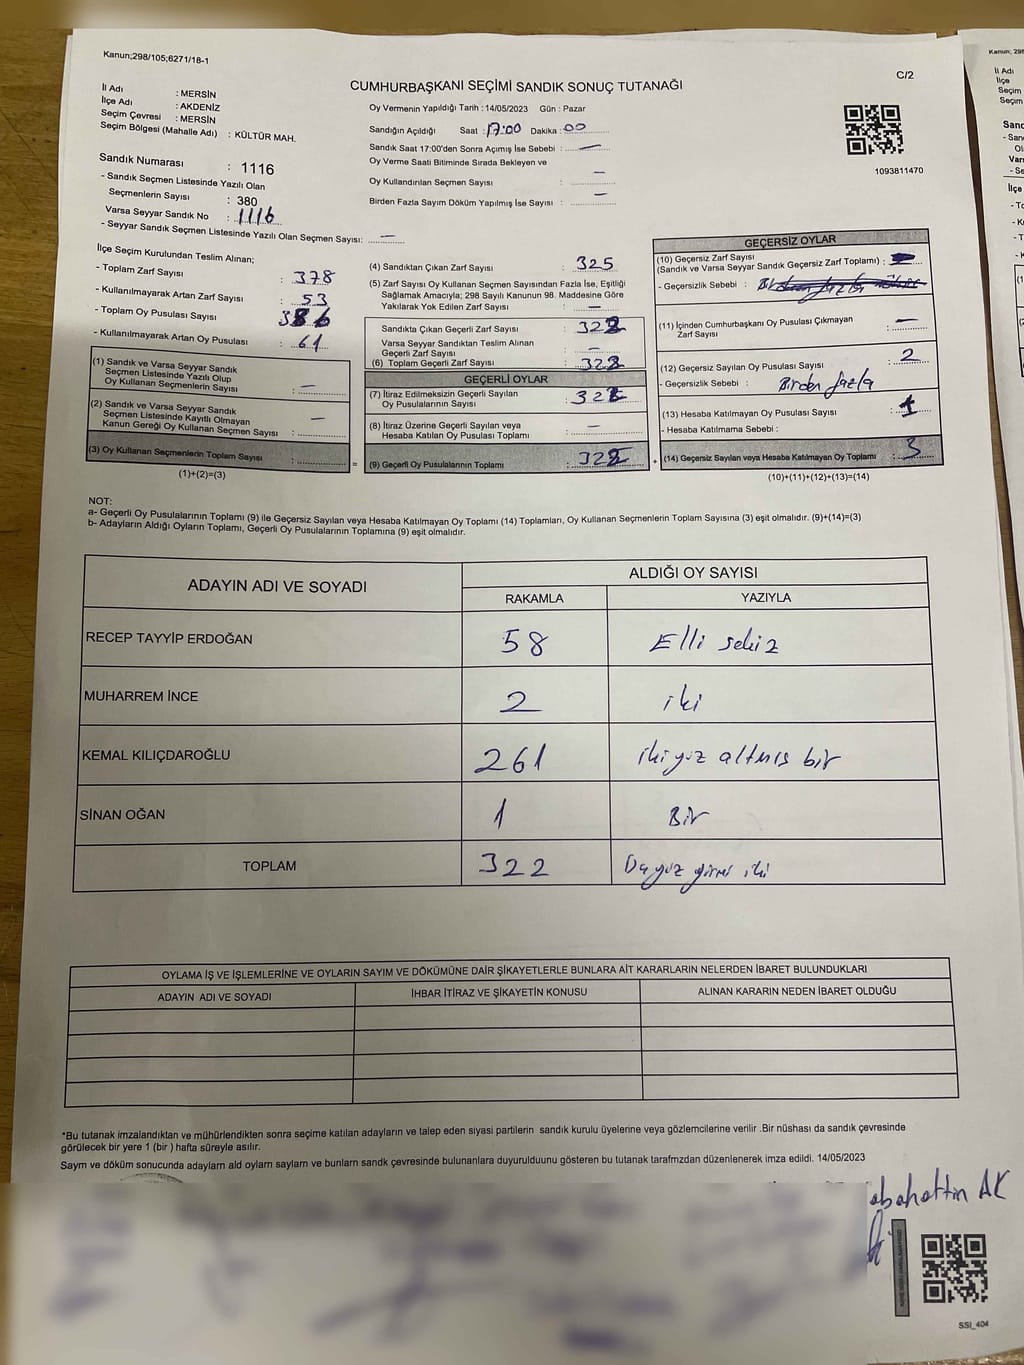 Kanun;298/105;6271/18-1
C/2
CUMHURBAŞKANI SEÇİMİ SANDIK SONUÇ TUTANAĞI
İl Adı : MERSİN
İlçe Adı : AKDENİZ
Seçim Çevresi : MERSİN
Seçim Bölgesi (Mahalle Adı) : KÜLTÜR MAH.
Sandık Numarası : 1116
- Sandık Seçmen Listesinde Yazılı Olan
Seçmenlerin Sayısı : 380
Varsa Seyyar Sandık No : 1116
- Seyyar Sandık Seçmen Listesinde Yazılı Olan Seçmen Sayısı: —
Oy Vermenin Yapıldığı Tarih : 14/05/2023 Gün : Pazar
Sandığın Açıldığı Saat : 17:00 Dakika : 00
Sandık Saat 17:00'den Sonra Açımış İse Sebebi : —
Oy Verme Saati Bitiminde Sırada Bekleyen ve
Oy Kullandırılan Seçmen Sayısı : —
Birden Fazla Sayım Döküm Yapılmış İse Sayısı : —
1093811470
İlçe Seçim Kurulundan Teslim Alınan;
- Toplam Zarf Sayısı : 378
- Kullanılmayarak Artan Zarf Sayısı : 53
- Toplam Oy Pusulası Sayısı
- Kullanılmayarak Artan Oy Pusulası : 61
(1) Sandık ve Varsa Seyyar Sandık
Seçmen Listesinde Yazılı Olup
Oy Kullanan Seçmenlerin Sayısı : —
(2) Sandık ve Varsa Seyyar Sandık
Seçmen Listesinde Kayıtlı Olmayan
Kanun Gereği Oy Kullanan Seçmen Sayısı : —
(3) Oy Kullanan Seçmenlerin Toplam Sayısı :
(1)+(2)=(3)
=
(4) Sandıktan Çıkan Zarf Sayısı : 325
(5) Zarf Sayısı Oy Kullanan Seçmen Sayısından Fazla İse, Eşitliği
Sağlamak Amacıyla; 298 Sayılı Kanunun 98. Maddesine Göre
Yakılarak Yok Edilen Zarf Sayısı : —
Sandıkta Çıkan Geçerli Zarf Sayısı : 322
Varsa Seyyar Sandıktan Teslim Alınan
Geçerli Zarf Sayısı : —
(6) Toplam Geçerli Zarf Sayısı : 322
GEÇERLİ OYLAR
(7) İtiraz Edilmeksizin Geçerli Sayılan
Oy Pusulalarının Sayısı : 322
(8) İtiraz Üzerine Geçerli Sayılan veya
Hesaba Katılan Oy Pusulası Toplamı : —
(9) Geçerli Oy Pusulalarının Toplamı : 322
+
GEÇERSİZ OYLAR
(10) Geçersiz Zarf Sayısı
(Sandık ve Varsa Seyyar Sandık Geçersiz Zarf Toplamı) :
- Geçersizlik Sebebi :
(11) İçinden Cumhurbaşkanı Oy Pusulası Çıkmayan
Zarf Sayısı : —
(12) Geçersiz Sayılan Oy Pusulası Sayısı : 2
- Geçersizlik Sebebi : Birden fazla
(13) Hesaba Katılmayan Oy Pusulası Sayısı : 1
- Hesaba Katılmama Sebebi :
(14) Geçersiz Sayılan veya Hesaba Katılmayan Oy Toplamı : 3
(10)+(11)+(12)+(13)=(14)
NOT:
a- Geçerli Oy Pusulalarının Toplamı (9) ile Geçersiz Sayılan veya Hesaba Katılmayan Oy Toplamı (14) Toplamları, Oy Kullanan Seçmenlerin Toplam Sayısına (3) eşit olmalıdır. (9)+(14)=(3)
b- Adayların Aldığı Oyların Toplamı, Geçerli Oy Pusulalarının Toplamına (9) eşit olmalıdır.
ADAYIN ADI VE SOYADI ALDIĞI OY SAYISI
RAKAMLA YAZIYLA
RECEP TAYYİP ERDOĞAN 58 Elli sekiz
MUHARREM İNCE 2 iki
KEMAL KILIÇDAROĞLU 261 ikiyüz altmış bir
SİNAN OĞAN 1 Bir
TOPLAM 322 iki
OYLAMA İŞ VE İŞLEMLERİNE VE OYLARIN SAYIM VE DÖKÜMÜNE DAİR ŞİKAYETLERLE BUNLARA AİT KARARLARIN NELERDEN İBARET BULUNDUKLARI
ADAYIN ADI VE SOYADI İHBAR İTİRAZ VE ŞİKAYETİN KONUSU ALINAN KARARIN NEDEN İBARET OLDUĞU
*Bu tutanak imzalandıktan ve mühürlendikten sonra seçime katılan adayların ve talep eden siyasi partilerin sandık kurulu üyelerine veya gözlemcilerine verilir .Bir nüshası da sandık çevresinde
görülecek bir yere 1 (bir ) hafta süreyle asılır.
Sayım ve döküm sonucunda adayların ald oyların sayları ve bunların sandk çevresinde bulunanlara duyurulduunu gösteren bu tutanak tarafmzdan düzenlenerek imza edildi. 14/05/2023
abahattin AK
SSI_404